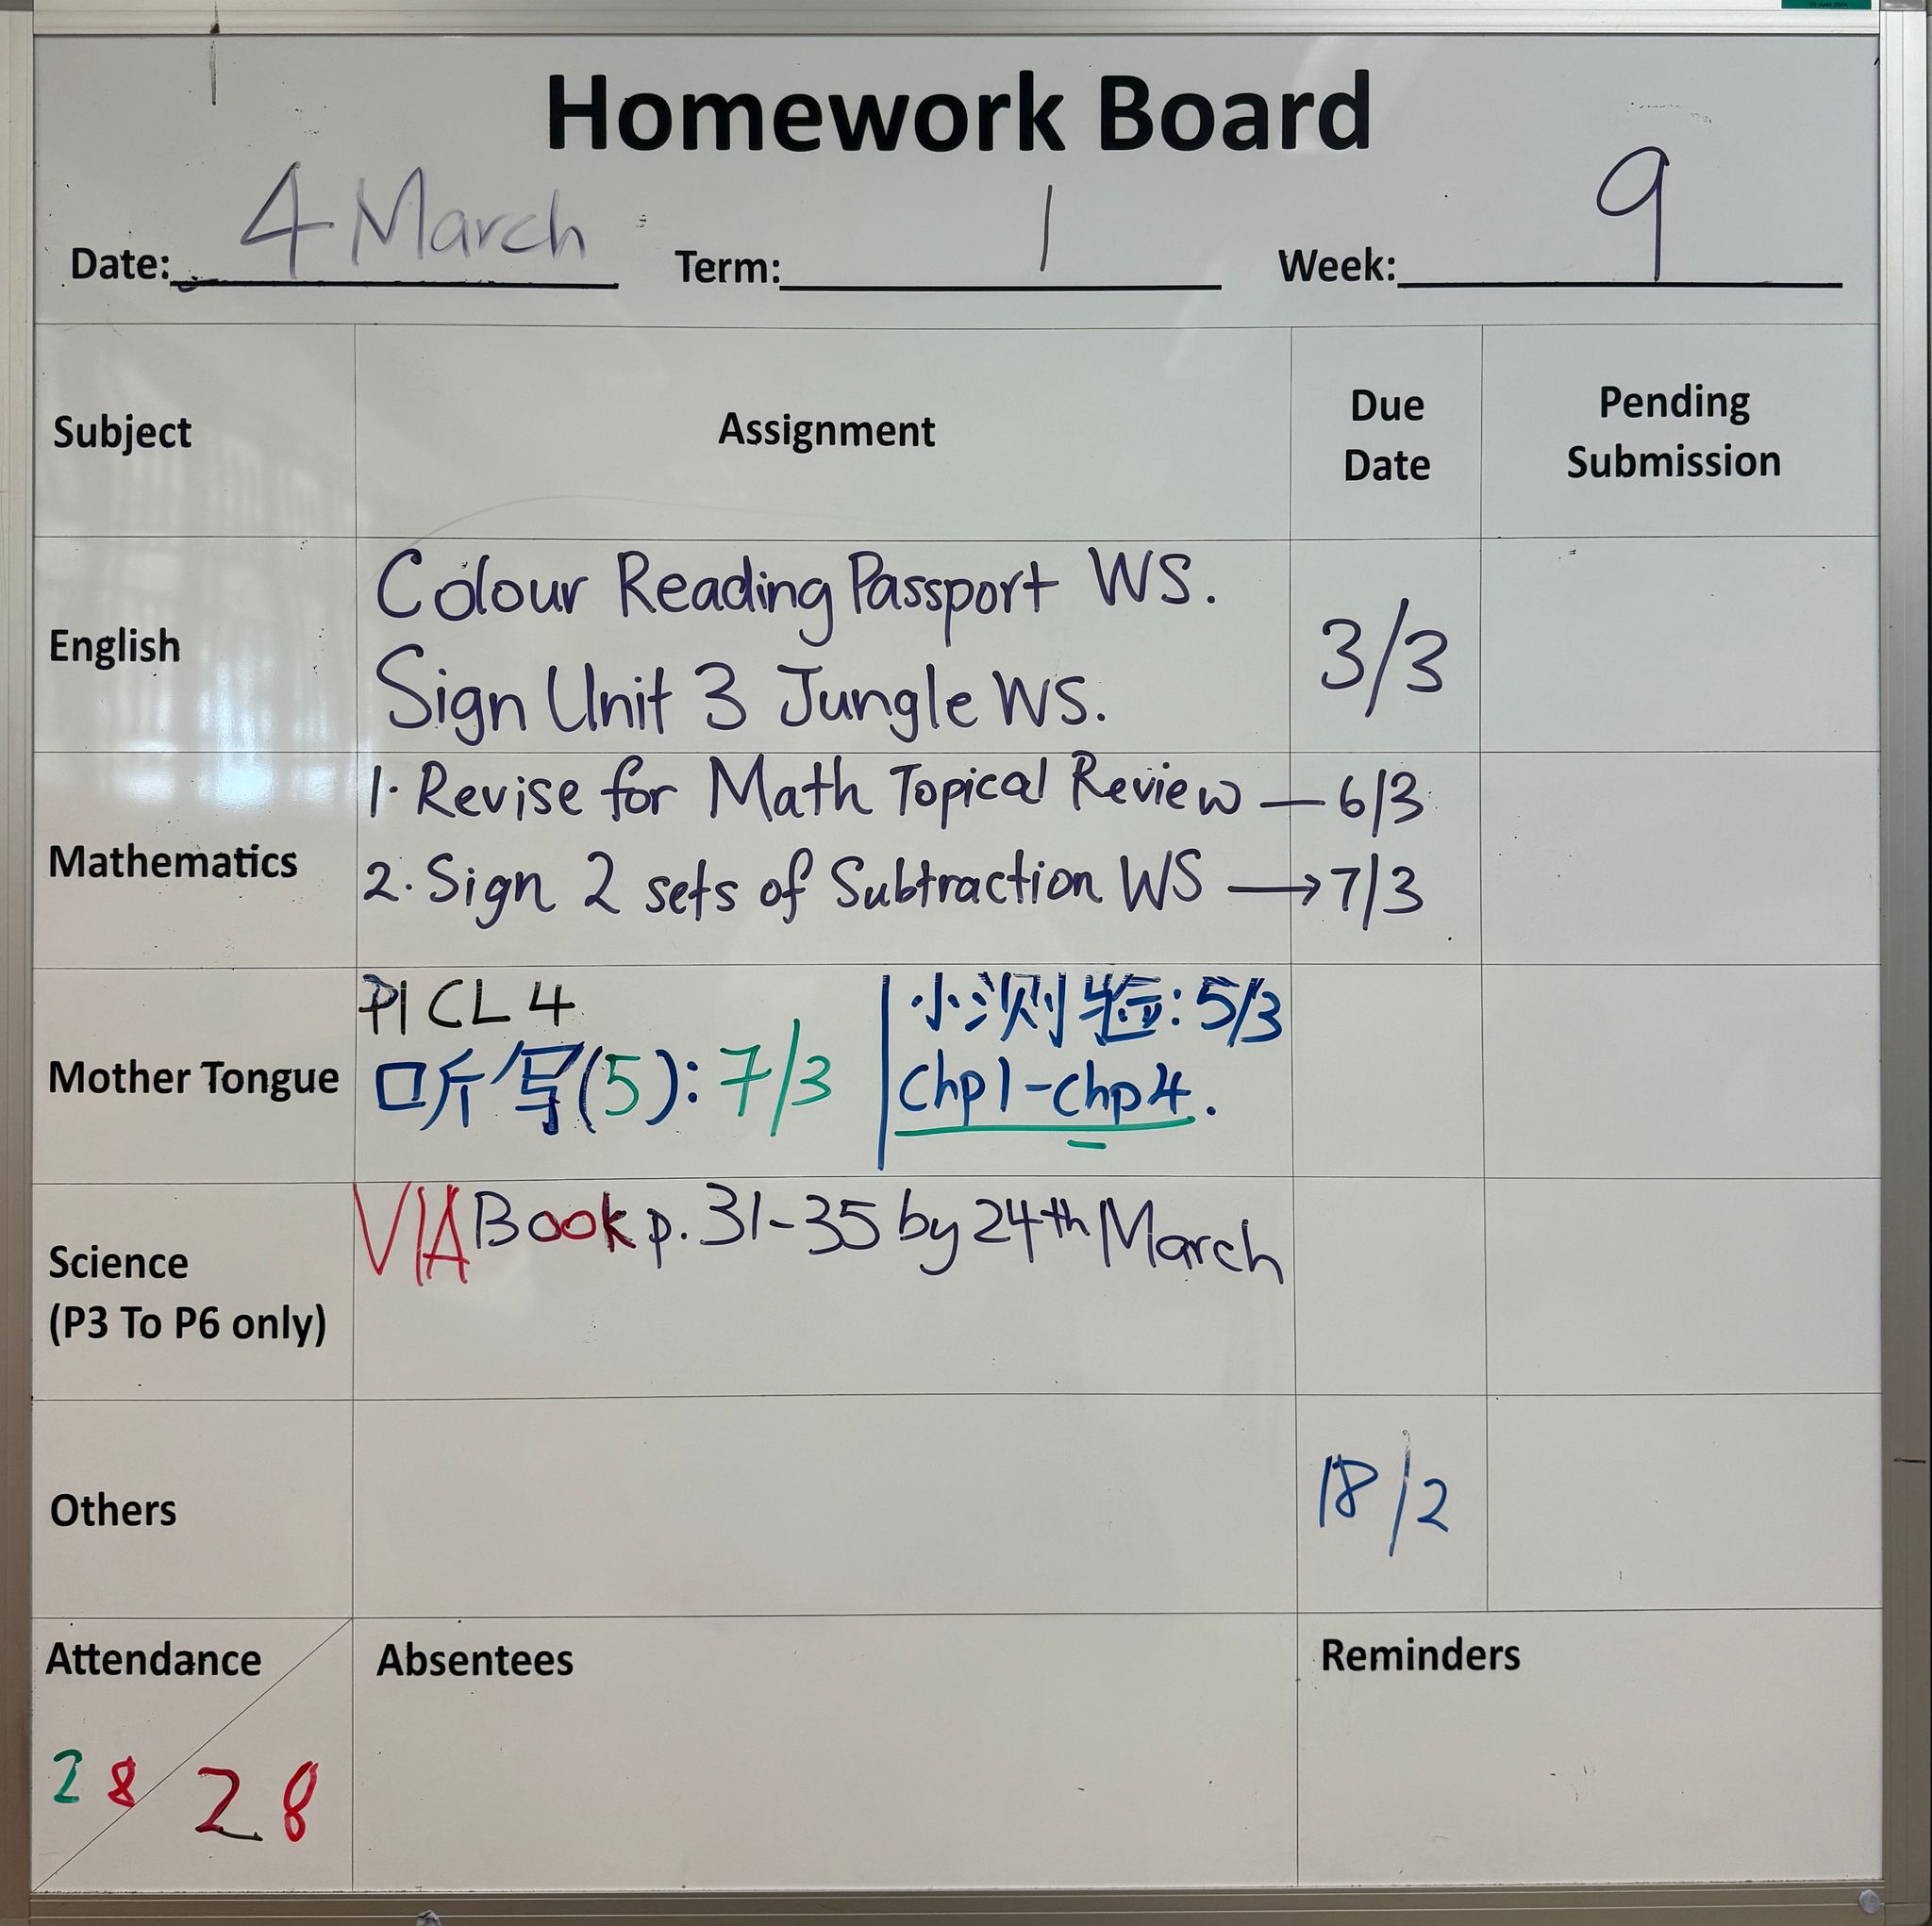 Homework Board
Date: 4 March Term: 1 Week: 9
Subject Assignment Due Date Pending Submission
English
Colour Reading Passport WS.
Sign Unit 3 Jungle WS.
3/3
Mathematics
1. Revise for Math Topical Review — 6/3
2. Sign 2 sets of Subtraction WS → 7/3
Mother Tongue
P1 CL 4
听写(5): 7/3
小测验: 5/3
Chp1-Chp4.
Science
(P3 To P6 only)
VIA Book p. 31-35 by 24th March
Others
18/2
Attendance Absentees Reminders
28 28